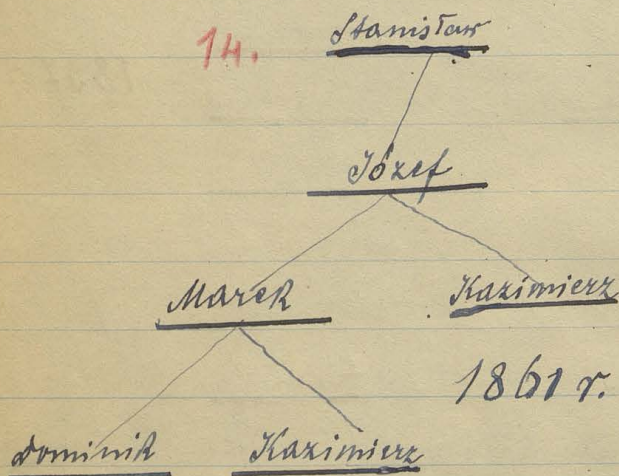 14.
Stanisław
Józef
Marek
Kazimierz
1861 r.
Dominik
Kazimierz